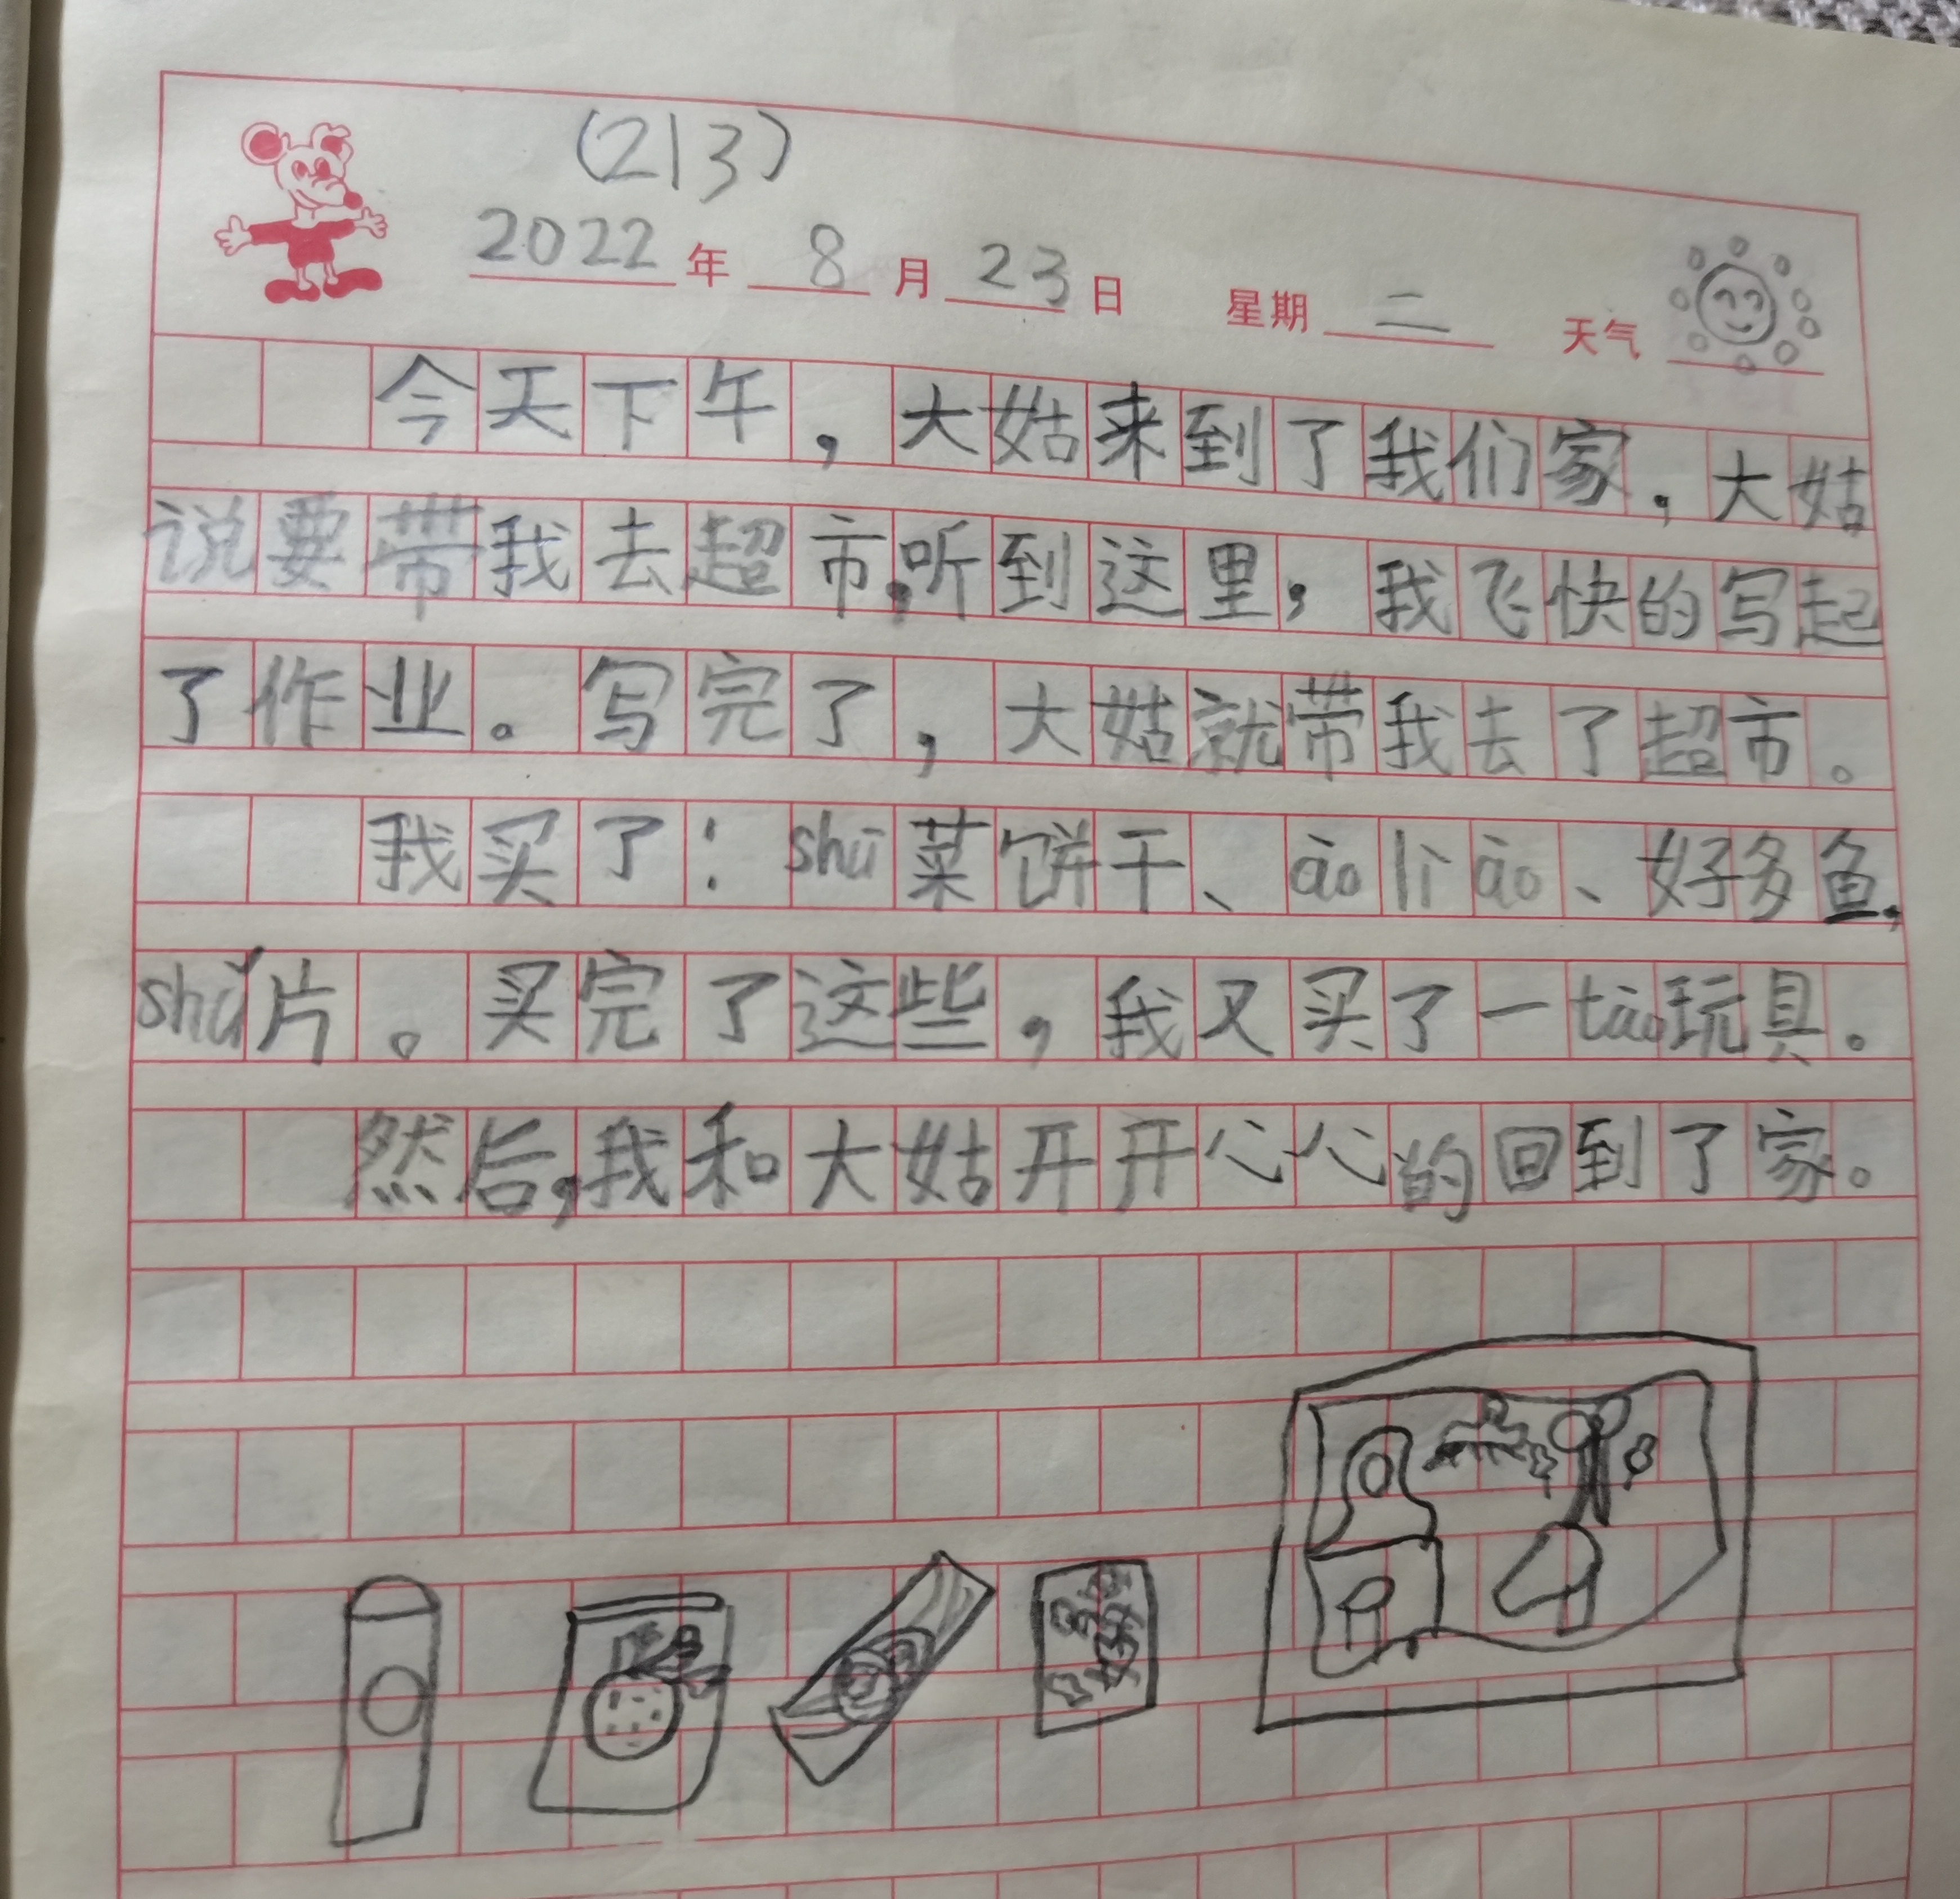 （213）
2022年 8月23日 星期二 天气
今天下午，大姑来到了我们家，大姑
说要带我去超市，听到这里，我飞快的写起
了作业。写完了，大姑就带我去了超市。
我买了：shū菜饼干、ào lì ào、好多鱼、
shǔ片。买完了这些，我又买了一tào玩具。
然后，我和大姑开开心心的回到了家。